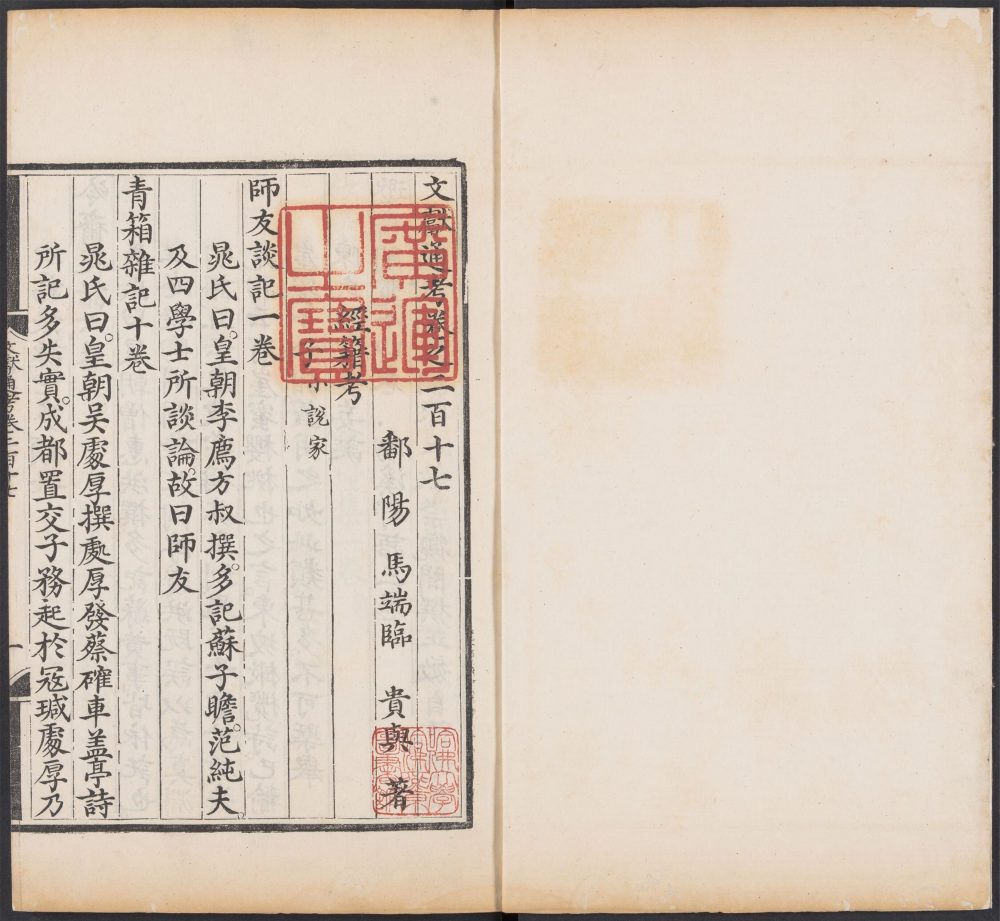 文獻通考卷之二百十七
鄱陽 馬端臨 貴與 著
經籍考
子 小說家
師友談記一卷
晁氏曰皇朝李廌方叔撰多記蘇子瞻范純夫
及四學士所談論故曰師友
青箱雜記十卷
晁氏曰皇朝吴處厚撰處厚發蔡確車盖亭詩
所記多失實成都置交子務起於寇瑊處厚乃
文獻通考卷二百十七
一
之寶
哈佛大學